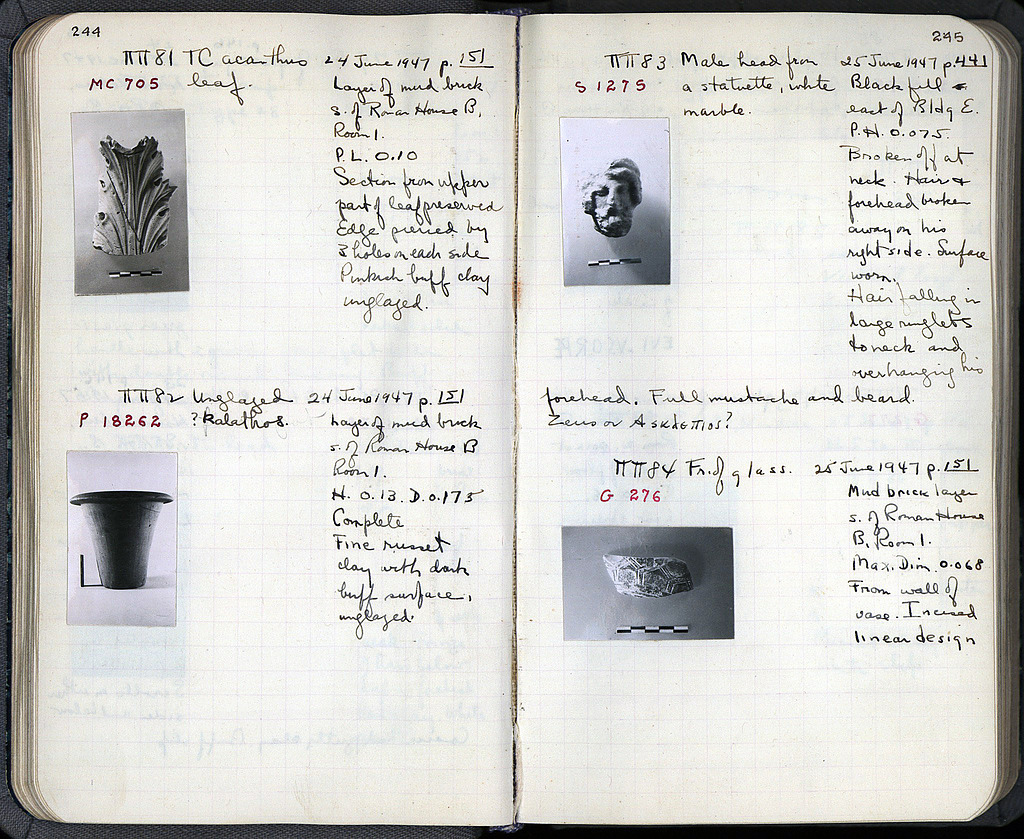 244
ΠΠ81 TC acanthus leaf.
MC 705
24 June 1947 p. 151
Layer of mud brick
s. of Roman House B,
Room 1.
P.L. 0.10
Section from upper
part of leaf preserved
Edge pierced by
3 holes on each side
Pinkish buff clay
unglazed.
ΠΠ82 Unglazed
? Kalathos.
P 18262
24 June 1947 p. 151
Layer of mud brick
s. of Roman House B
Room 1.
H. 0.13. D. 0.175
Complete
Fine russet
clay with dark
buff surface,
unglazed.
245
ΠΠ83 Male head from
a statuette, white
marble.
S 1275
25 June 1947 p. 441
Black fill
east of Bldg E.
P.H. 0.075.
Broken off at
neck. Hair &
forehead broken
away on his
right side. Surface
worn.
Hair falling in
large ringlets
to neck and
overhanging his
forehead. Full mustache and beard.
Zeus or Asklepios?
ΠΠ84 Fr. of glass.
G 276
25 June 1947 p. 151
Mud brick layer
s. of Roman House
B, Room 1.
Max. Dim. 0.068
From wall of
vase. Incised
linear design